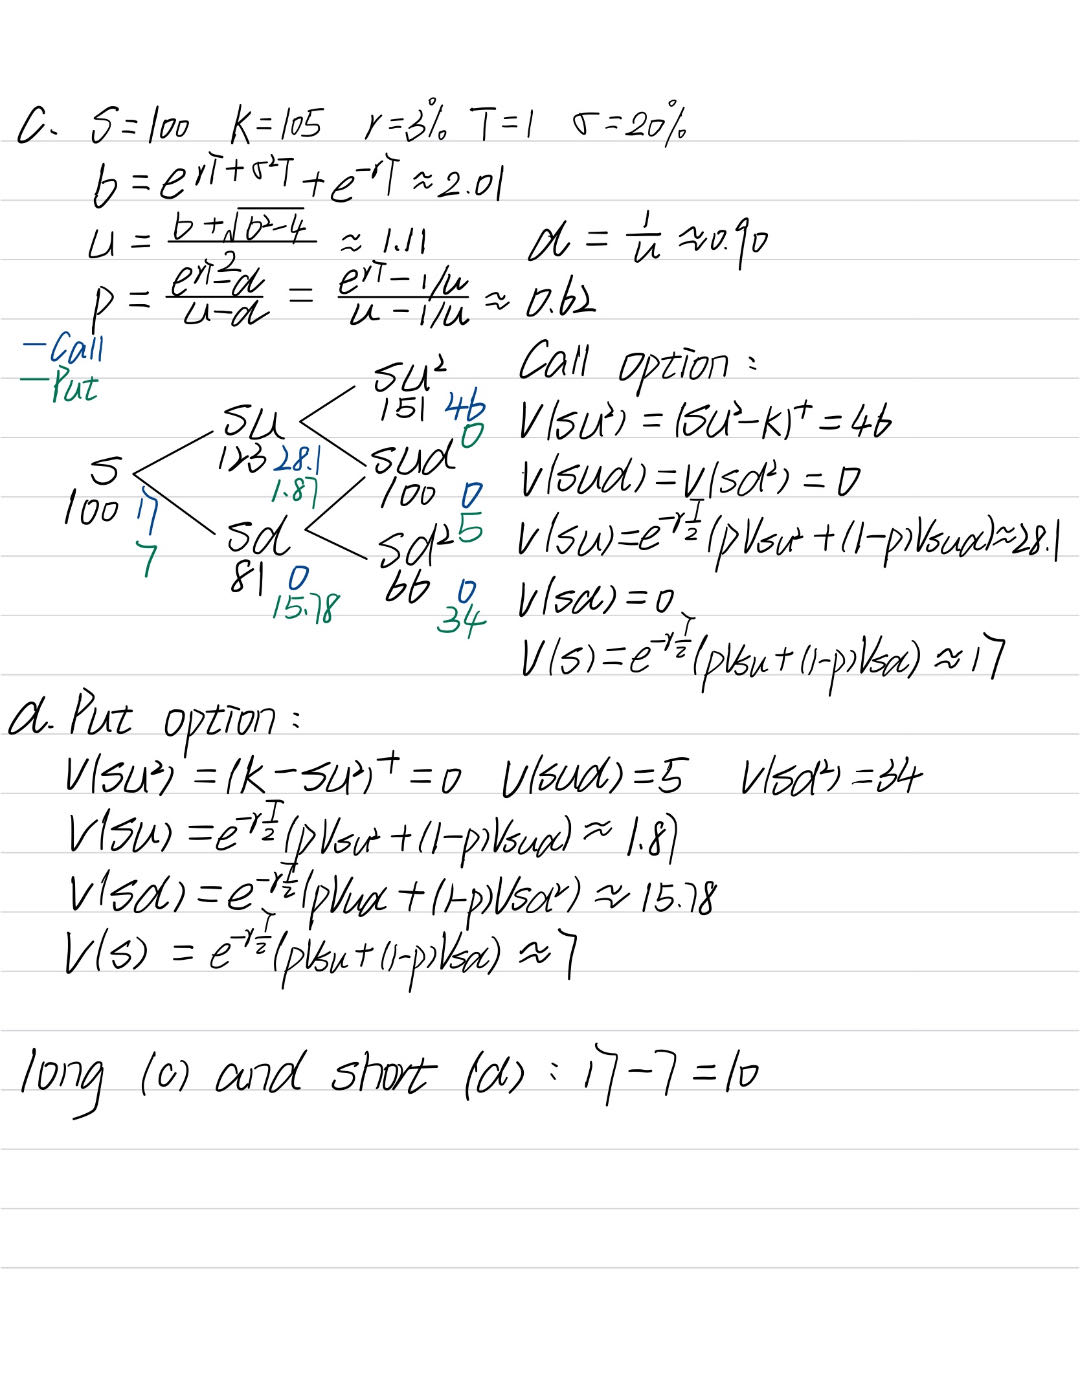 c. S=100 K=105 r=3% T=1 σ=20%
b = e^{rT+σ²T} + e^{-rT} ≈ 2.01
u = (b+√(b²-4))/2 ≈ 1.11 d = 1/u ≈ 0.90
p = (e^{rT}-d)/(u-d) = (e^{rT}-1/u)/(u-1/u) ≈ 0.62
-Call
-Put
su²
151 46
0
su
123 28.1
1.87
sud
100 0
5
s
100 17
7
sd
81 0
15.78
sd²
66 0
34
Call option:
V(su²) = (su²-k)⁺ = 46
V(sud) = V(sd²) = 0
V(su) = e^{-r T/2}(pVsu² + (1-p)Vsud) ≈ 28.1
V(sd) = 0
V(s) = e^{-r T/2}(pVsu + (1-p)Vsd) ≈ 17
d. Put option:
V(su²) = (k-su²)⁺ = 0 V(sud) = 5 V(sd²) = 34
V(su) = e^{-r T/2}(pVsu² + (1-p)Vsud) ≈ 1.87
V(sd) = e^{-r T/2}(pVud + (1-p)Vsd²) ≈ 15.78
V(s) = e^{-r T/2}(pVsu + (1-p)Vsd) ≈ 7
long (c) and short (d): 17-7=10